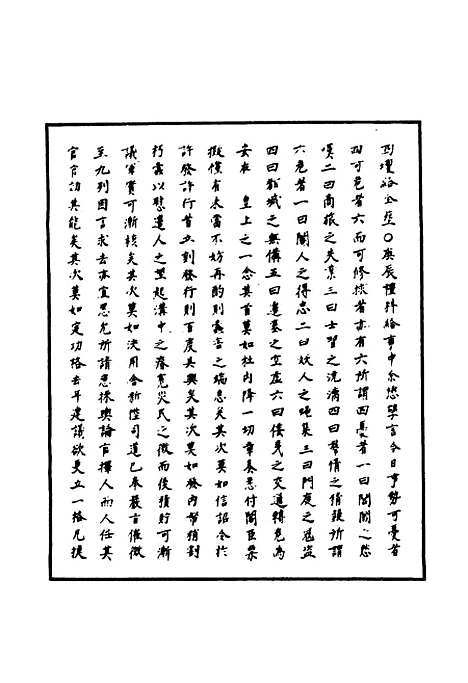 四壇給金□○庚辰禮科給事中余懋孳言今日事勢可憂者
四可危者六而可修救者亦有六所謂四憂者一曰閭閻之愁
嘆二曰商旅之失業三曰士習之澆漓四曰鷔情之偷頹所謂
六危者一曰閹人之得志二曰妖人之嘯集三曰門庭之寇盜
四曰都城之無備五曰邊墓之空虛六曰倭夷之交通轉危為
安在　皇上之一念其首莫如杜內降一切章奏悉付閣臣票
擬僅有未當不妨再酌則羣言之端息矣其次莫如信詔令於
許發許行者立刻發行則百度具興矣其次莫如發內帑稍割
朽蠹以慰遠人之望起溝中之瘠寬災民之徵而後積貯可漸
議軍實可漸核矣其次莫如決用舍新陞司道已奉嚴旨催徵
至九列因言求去亦宜思允所請悉採輿論官擇人而人任其
官官効其能矣其次莫如定功格去年建議欲更立一格凡提